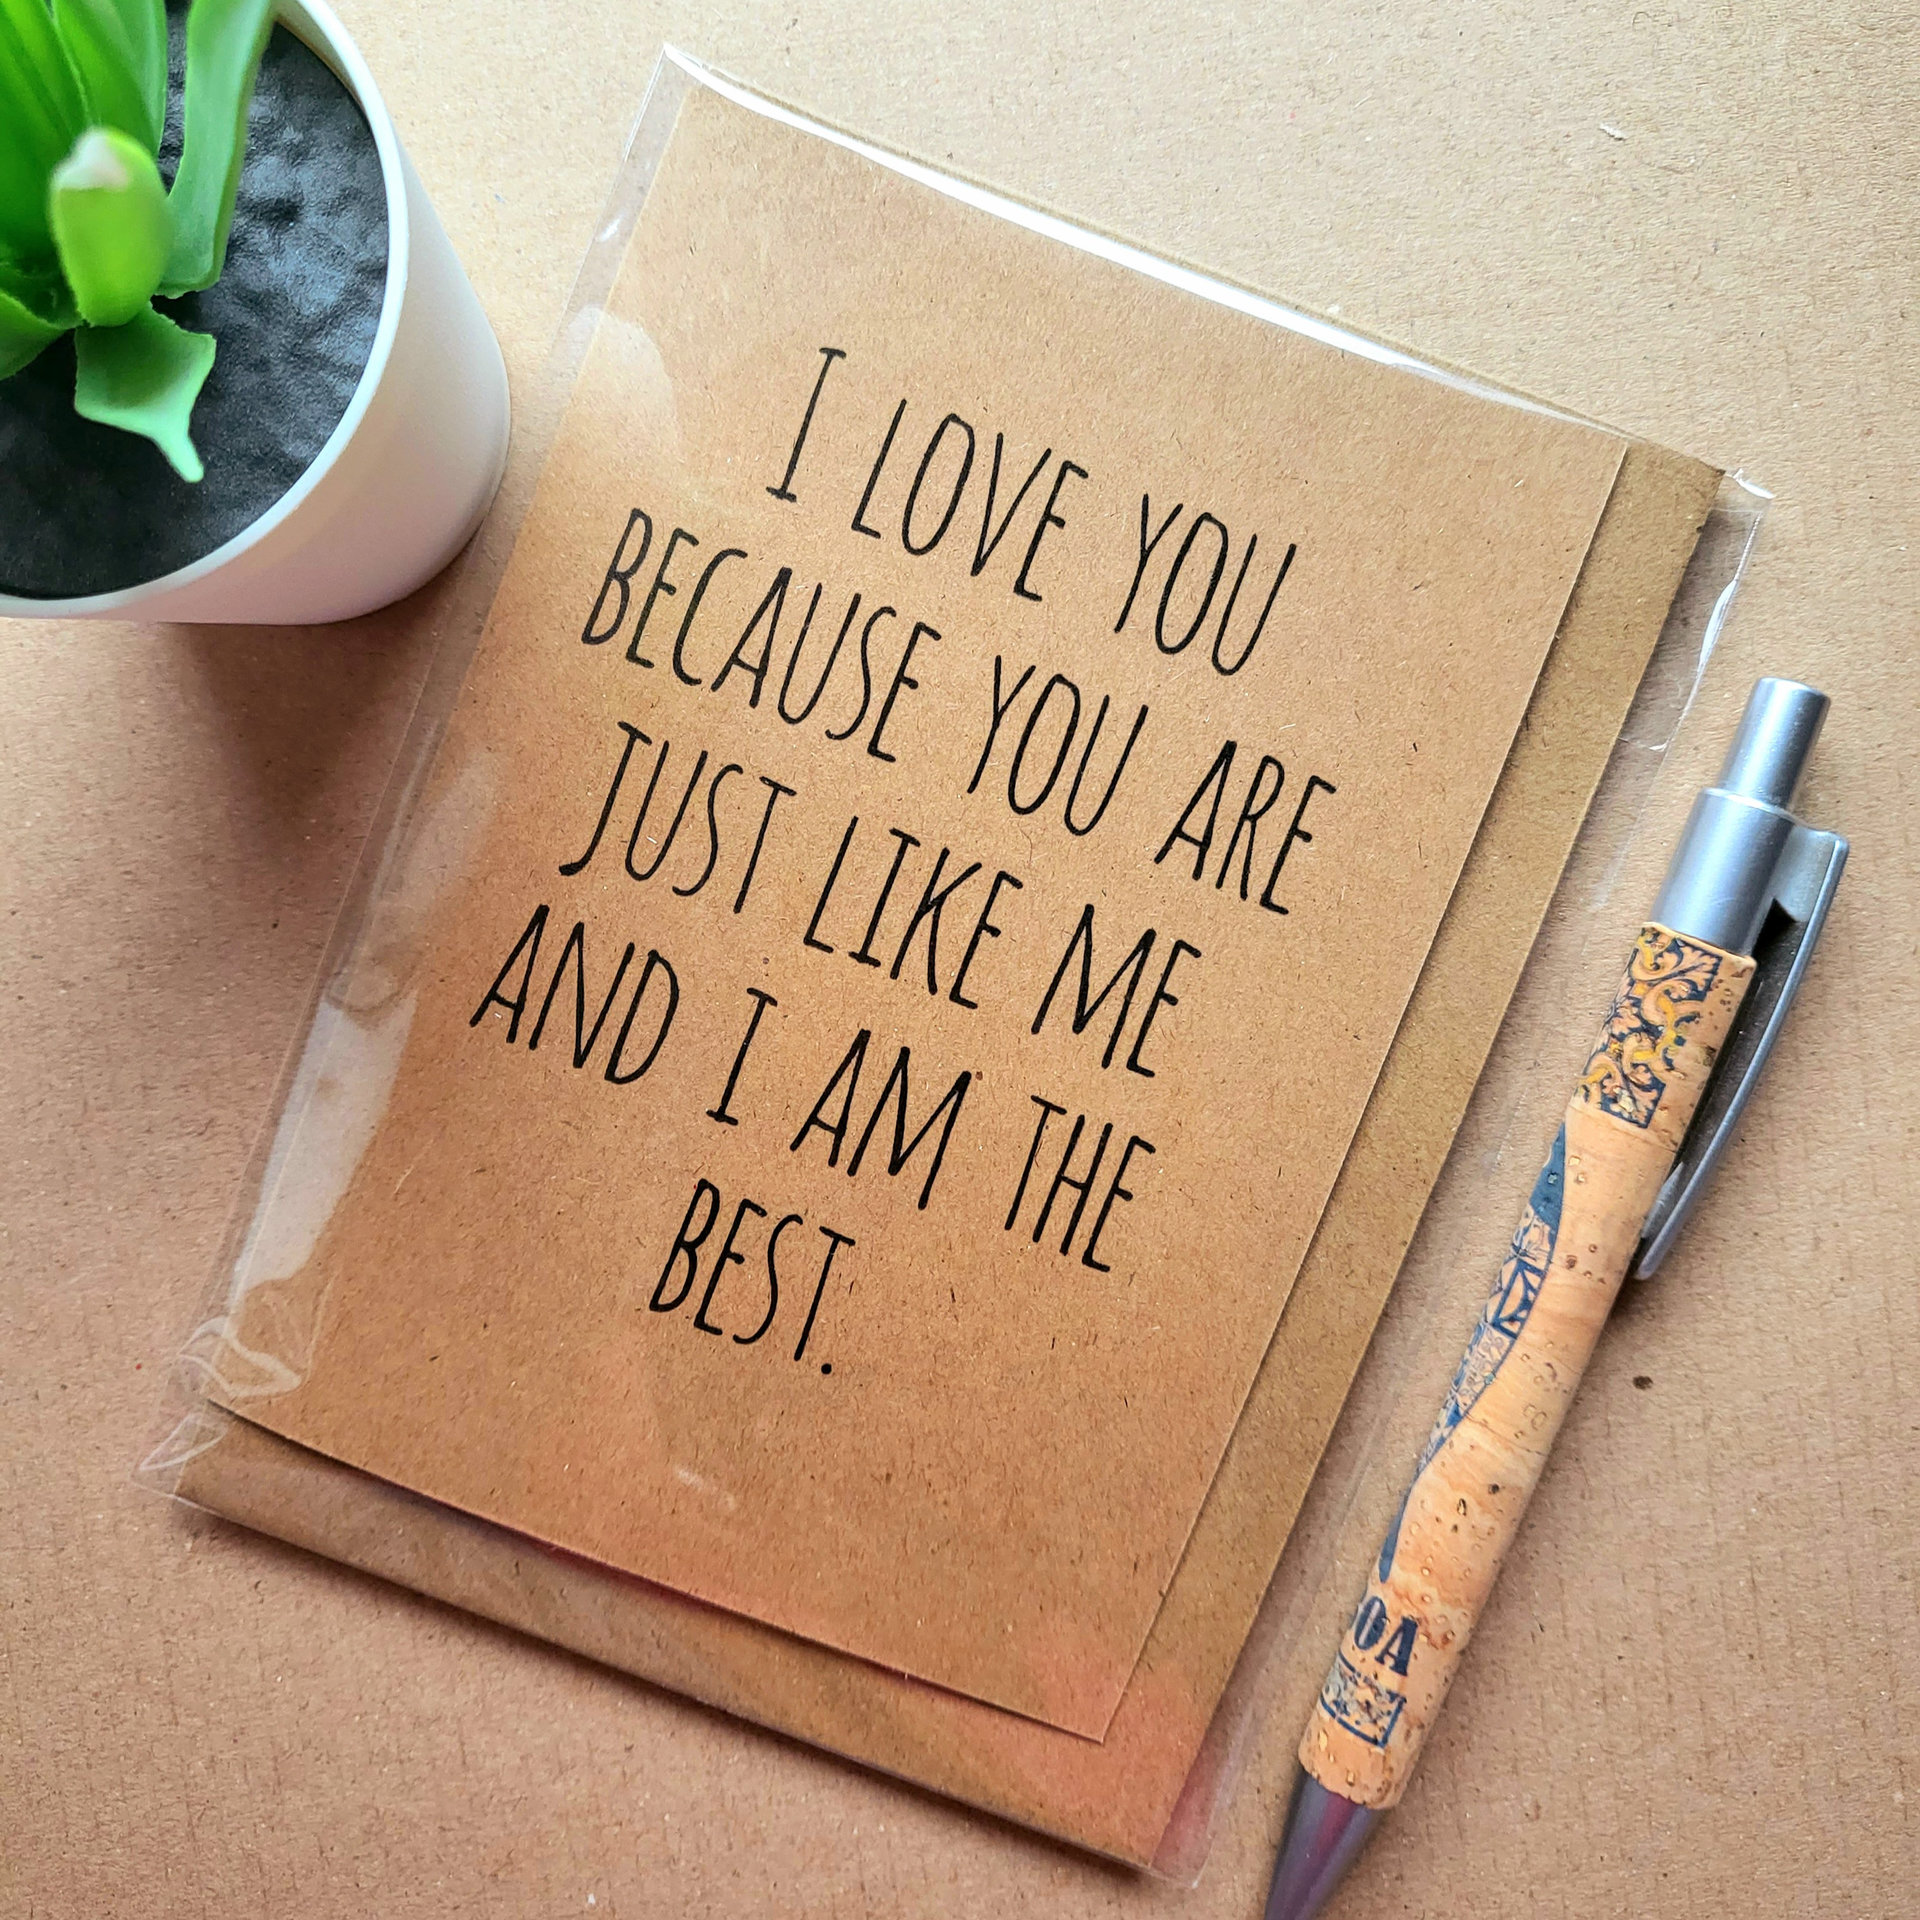 I LOVE YOU
BECAUSE YOU ARE
JUST LIKE ME
AND I AM THE
BEST.
OA